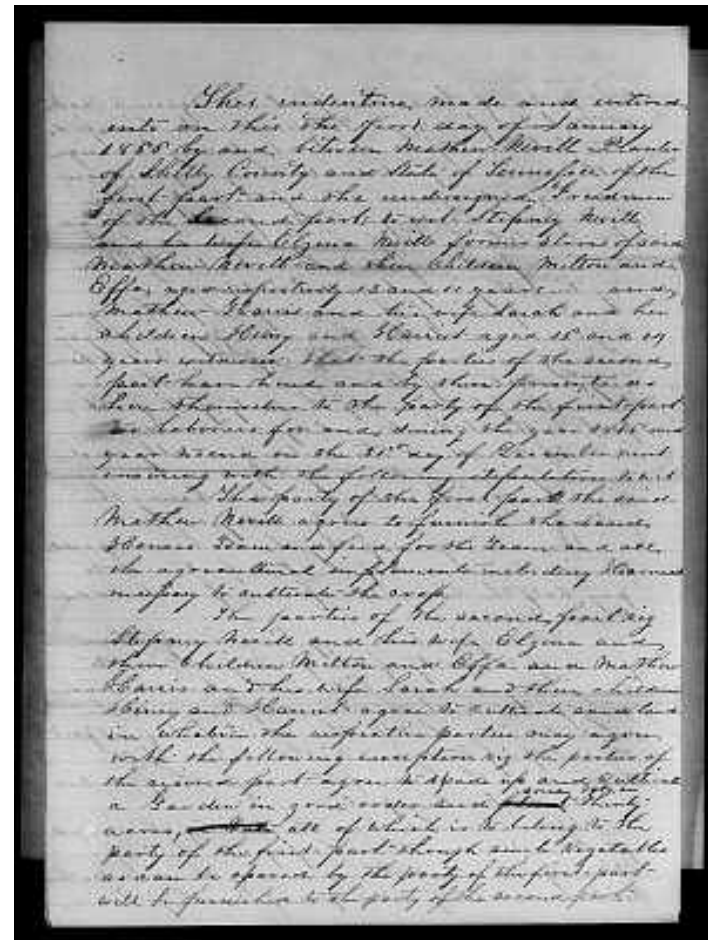 This indenture, made and entered
into on this the first day of January
1866 by and between Mathew Nevill Planter
of Shelby County and State of Tennessee of the
first part and the undersigned Freedmen
of the Second part, to wit. Stepney Nevill
and his wife Elzina Nevill former slaves of said
Mathew Nevill and their children Milton and
Effa, aged respectively 12 and 11 years and
Mathew Harris and his wife Sarah and her
children Henry and Harriet aged 15 and 14
years witnesses that the parties of the second
part have hired and by these presents do
hire themselves to the party of the first part
as laborers for and during the year 1866 said
year to end on the 31st day of December next
ensuing with the following stipulations to wit
The party of the first part the said
Mathew Nevill agrees to furnish the land,
Houses Team and feed for the Team and all
the agricultural implements including
necessary to cultivate the crop
The parties of the second part viz
Stepney Nevill and his wife Elzina and
their children Milton and Effa and Mathew
Harris and his wife Sarah and their children
Henry and Harriet agree to cultivate said land
in whatever the respective parties may agree
with the following exception viz the parties of
the second part agree to spade up and cultivate
a Garden in good order and thirty
acres, all of which is to belong to the
party of the first part though such vegetables
as can be spared by the party of the first part
will be furnished to the party of the second part.